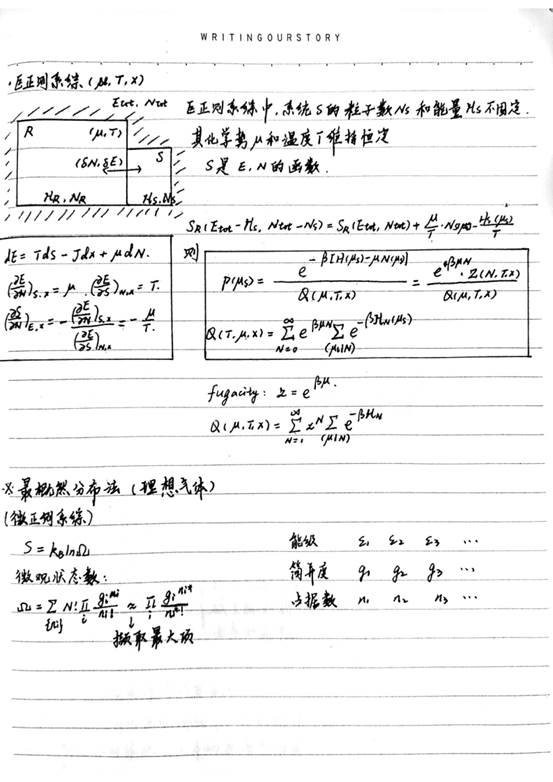 WRITINGOURSTORY
·巨正则系综 (μ, T, x)
Etot, Ntot
R (μ, T)
(δN, δE) S
HR, NR Hs, Ns
巨正则系综中, 系统 S 的粒子数 Ns 和能量 Hs 不固定.
其化学势 μ 和温度 T 维持恒定
S 是 E, N 的函数.
SR(Etot - Hs, Ntot - Ns) = SR(Etot, Ntot) + μ/T · Ns(μs) - Hs(μs)/T
dE = TdS - Jdx + μdN.
(∂E/∂N)S,x = μ, (∂E/∂S)N,x = T.
(∂S/∂N)E,x = - (∂E/∂N)S,x / (∂E/∂S)N,x = - μ/T.
则
P(μs) = e^{-β[H(μs)-μN(μs)]} / Q(μ,T,x) = e^{βμN} · Z(N,T,x) / Q(μ,T,x)
Q(T,μ,x) = Σ_{N=0}^{∞} e^{βμN} Σ_{(μs|N)} e^{-βHN(μs)}
fugacity: z = e^{βμ}.
Q(μ,T,x) = Σ_{N=0}^{∞} z^N Σ_{(μ|N)} e^{-βHN}
※ 最概然分布法 (理想气体)
(微正则系综)
S = kB lnΩ
微观状态数:
Ω = Σ_{{ni}} N! Π_i gi^{ni}/ni! ≈ Π_i gi^{ni*}/ni*!
↓
撷取最大项
能级 ε1 ε2 ε3 ···
简并度 g1 g2 g3 ···
占据数 n1 n2 n3 ···